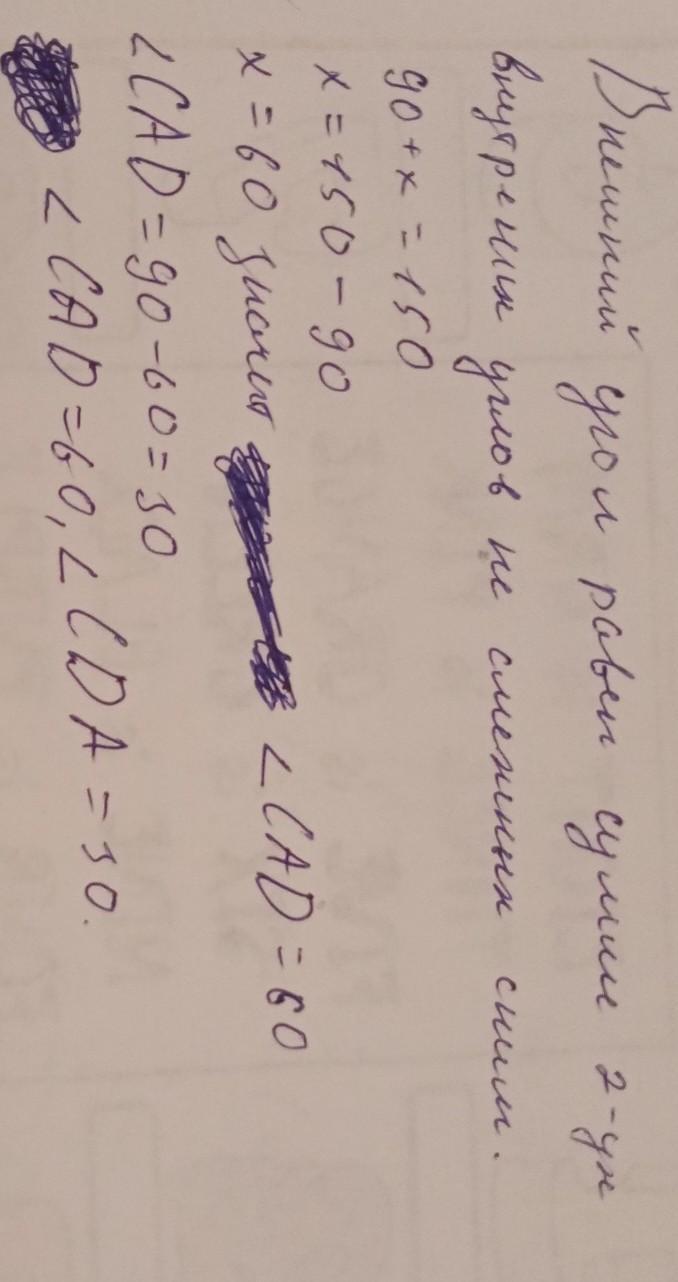 Внешний угол равен сумме 2-ух
внутрених углов не смежных сним.
90 + x = 150
x = 150 - 90
x = 60 значит <CAD = 60
<CAD = 90 - 60 = 30
<CAD = 60, <CDA = 30.